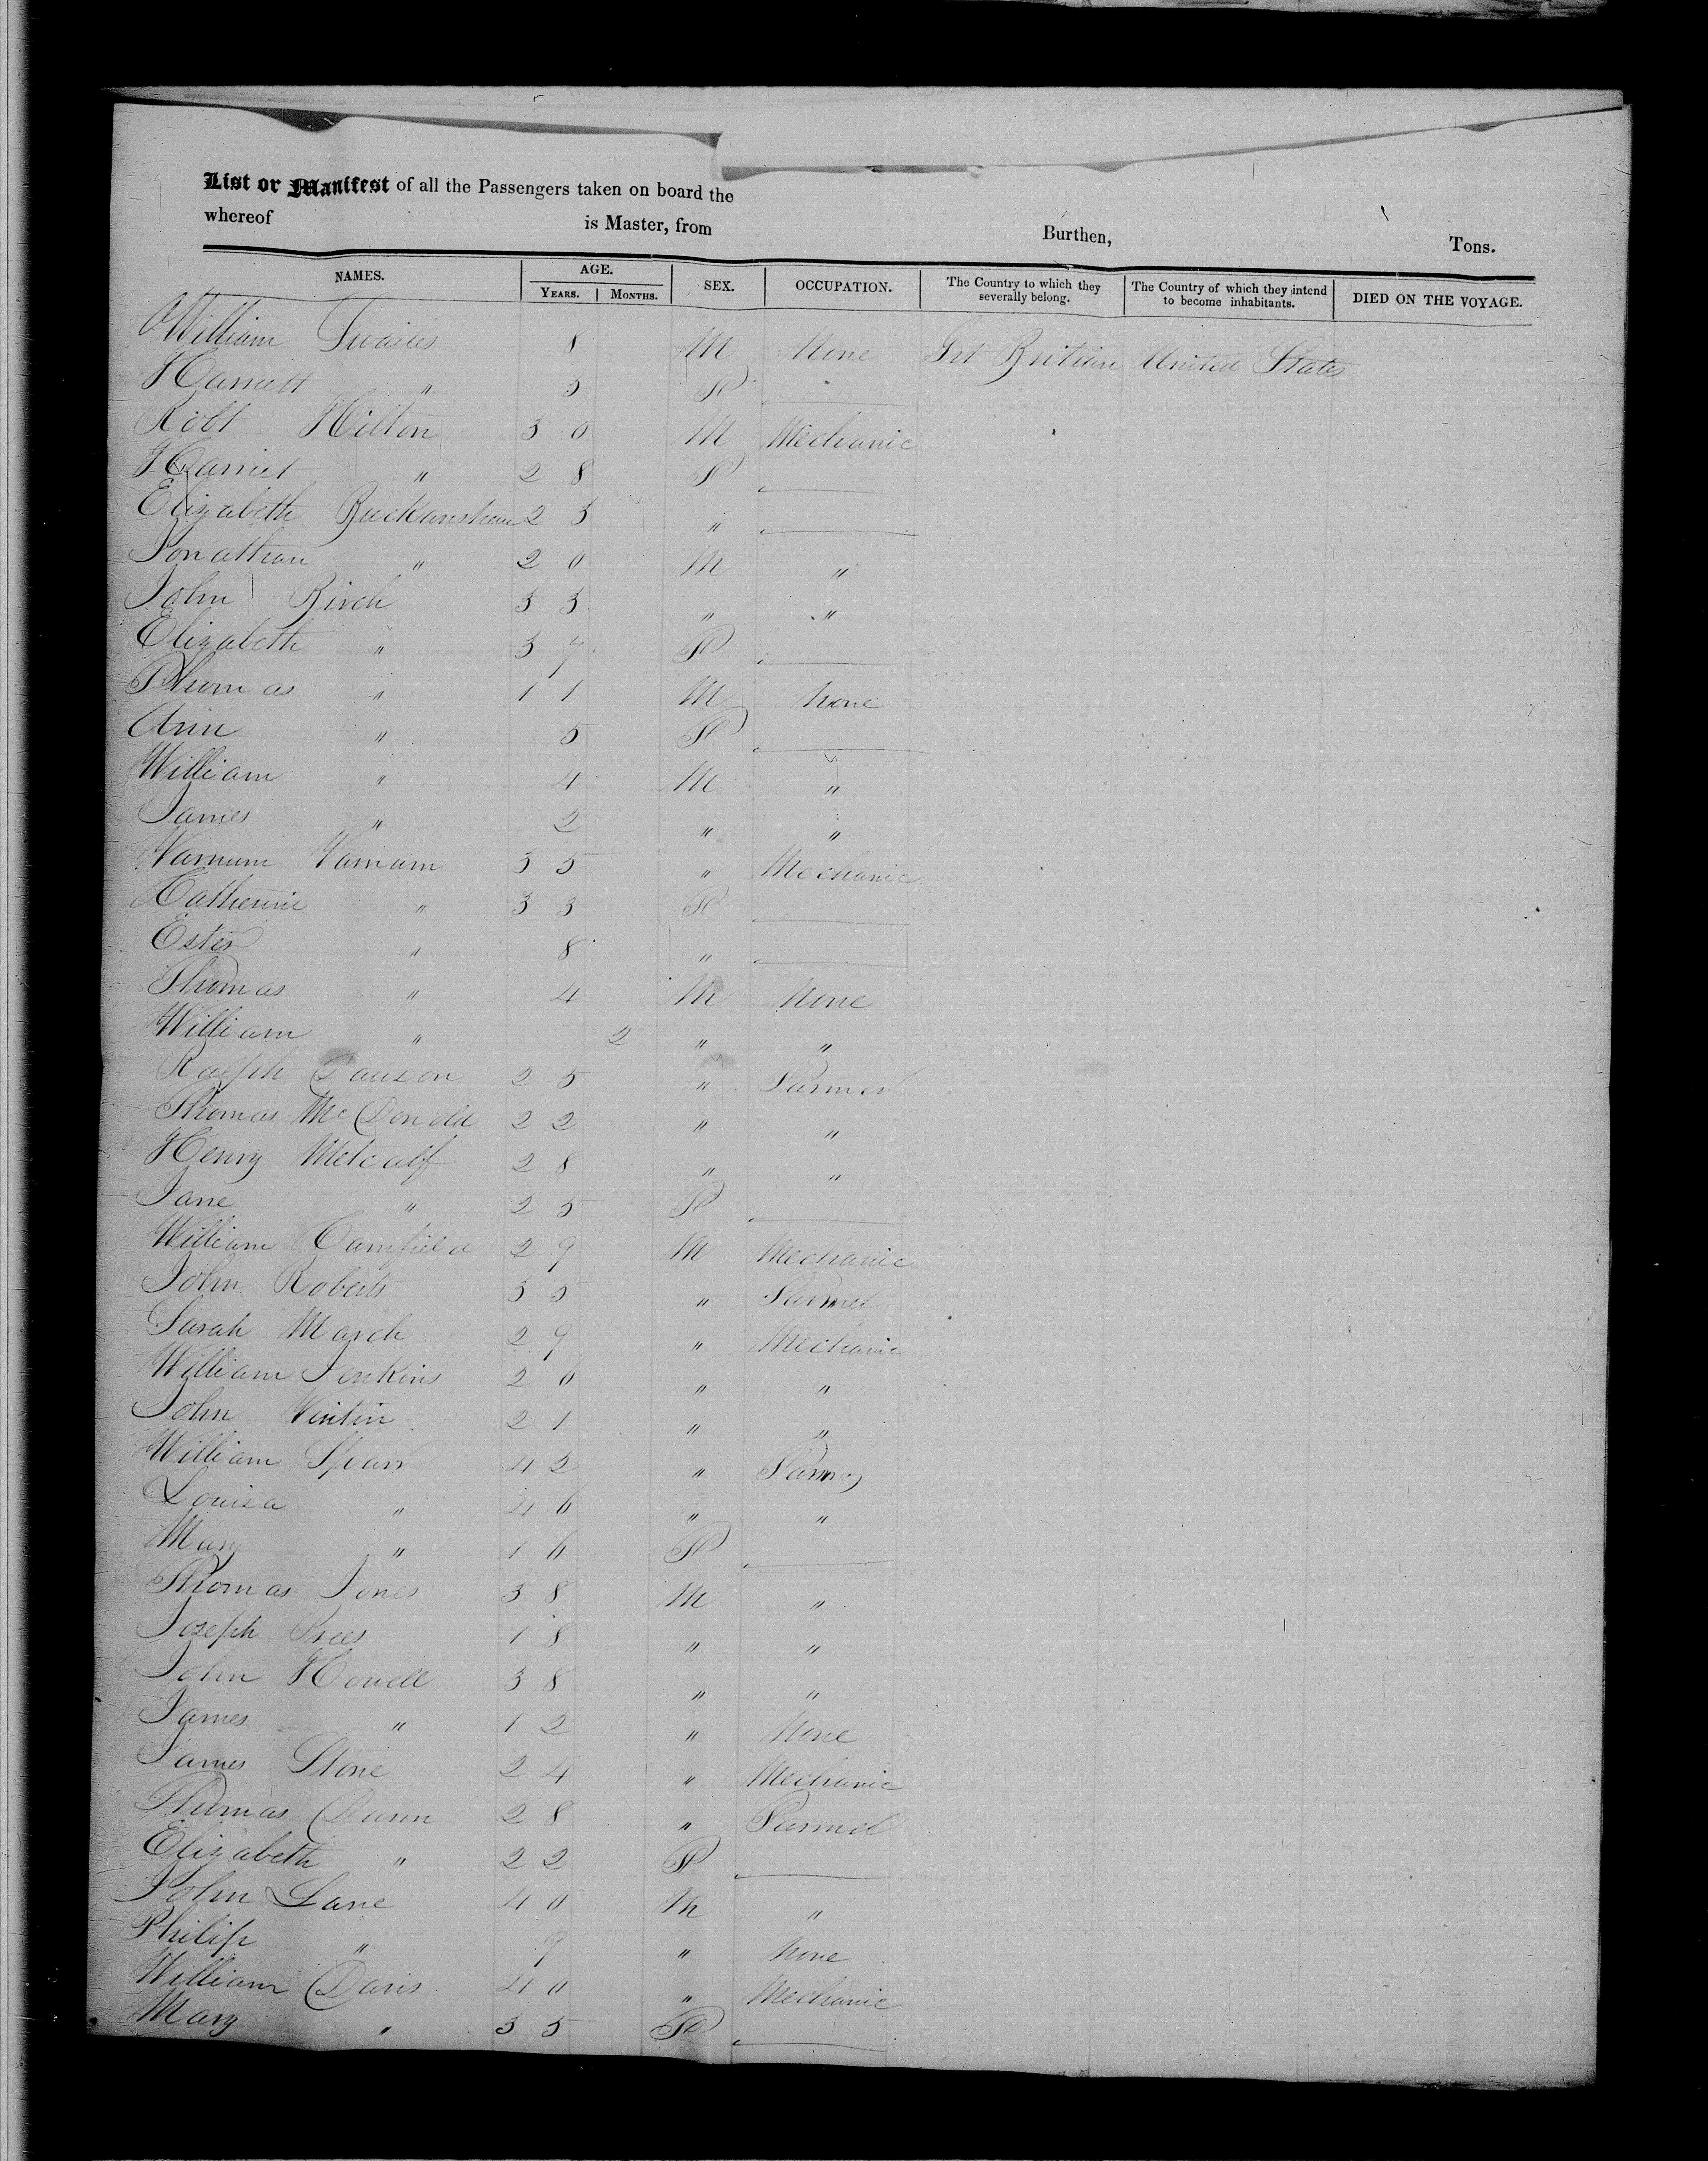 List or Manifest of all the Passengers taken on board the
whereof is Master, from Burthen, Tons.
NAMES. AGE. SEX. OCCUPATION. The Country to which they severally belong. The Country of which they intend to become inhabitants. DIED ON THE VOYAGE.
YEARS. MONTHS.
William Twailes 8 M None Grt Britian United States
Harriett " 5 F
Robt Hilton 30 M Mechanic
Harriet " 28 F
Elizabeth 23 "
Jonathan " 20 M "
John Birch 33 " "
Elizabeth " 37 F
Thomas " 11 M None
Ann " 5 F
William " 4 M "
James " 2 " "
Varnum Varnam 35 " Mechanic
Catherine " 33 F
Ester " 8 "
Thomas " 4 M None
William " 2 " "
Ralph Dauson 25 " Farmer
Thomas McDonald 22 " "
Henry Metcalf 28 " "
Jane " 25 F
William Camfield 29 M Mechanic
John Roberts 35 " Farmer
Sarah March 29 " Mechanic
William Jenkins 20 " "
John 21 " "
William 42 " Farmer
Louisa " 46 " "
Mary " 16 F
Thomas Jones 38 M "
Joseph Prees 18 " "
John Howell 38 " "
James " 12 " None
James Stone 24 " Mechanic
Thomas Dunn 28 " Farmer
Elizabeth " 22 F
John Lane 40 M "
Philip " 9 " None
William Davis 40 " Mechanic
Mary " 35 F